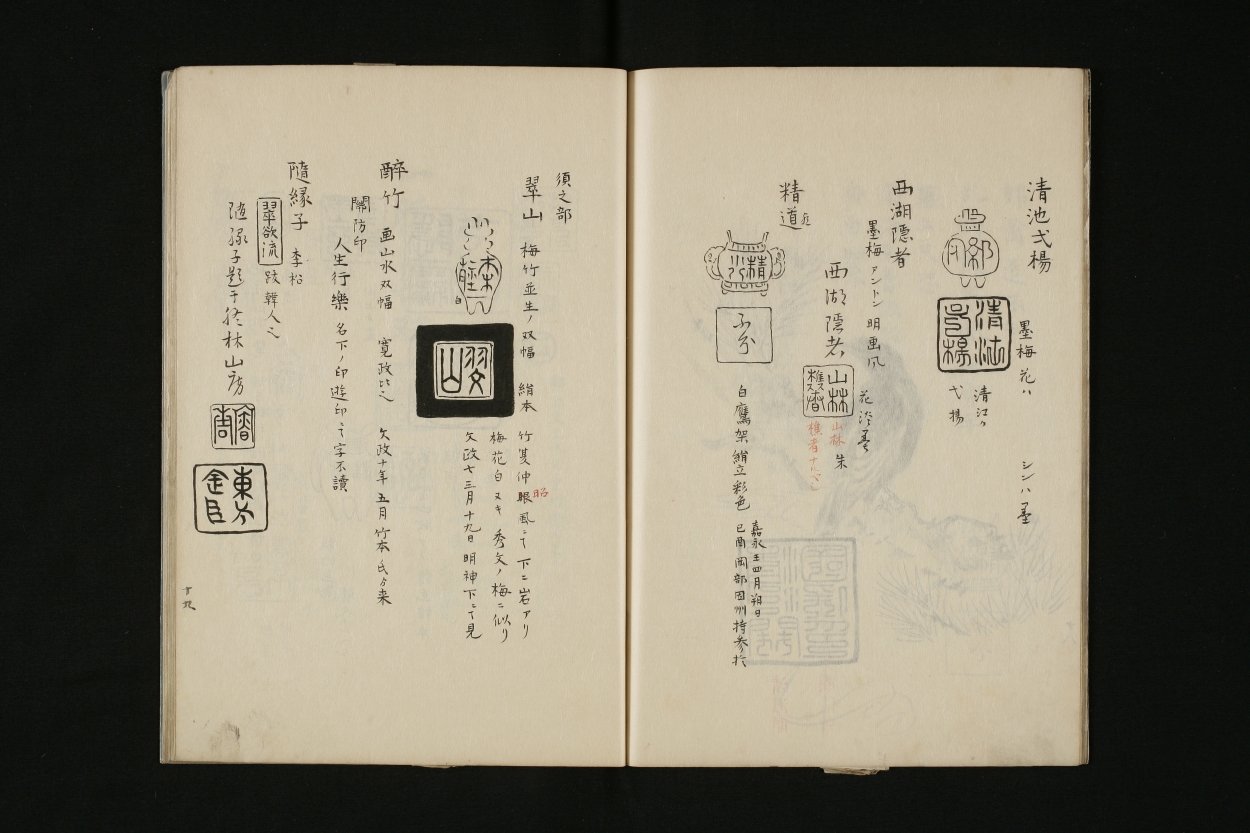 清池弍楊
墨梅 花ハ シンハ墨
清江カ
弍楊
西湖隠者
墨梅 アントン 明画風
花 淡墨
西湖隠者
山林
山林 朱
樵者ナルヘシ
精道
精
白鷹架 絹立彩色
嘉永 四月朔日
己酉岡部因州持参
須之部
翠山 梅竹並生ノ双幅 絹本
竹 仲昭風ニテ下ニ岩アリ
梅花白ヌキ 秀文ノ梅ニ似リ
文政七三月十九日 明神下ニテ見
白
醉竹 画山水双幅 寛政比之 文政十年五月竹本氏ゟ来
關防印
人生行樂 名下ノ印遊印ニテ字不讀
隨縁子 李松
翠欲流 跋韓人之
随縁子題于 林山房
十九